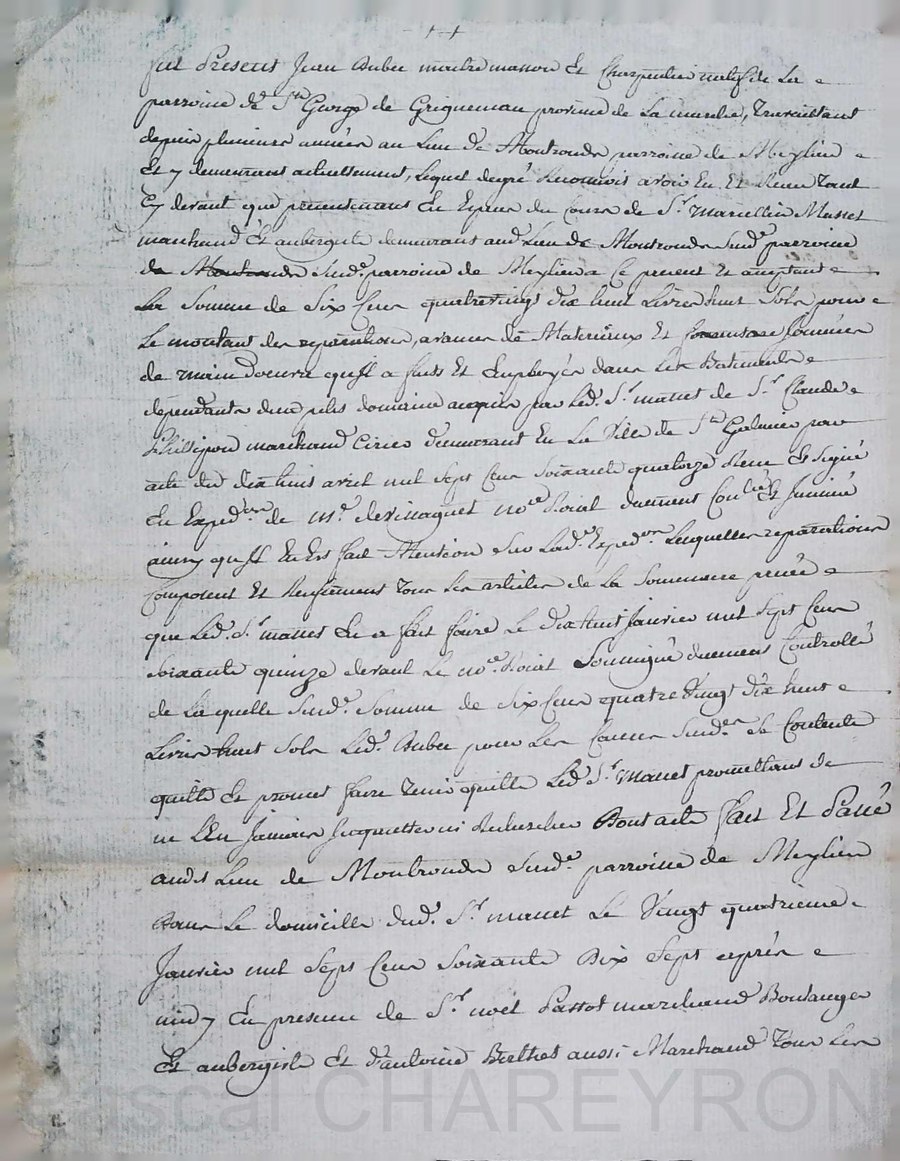 fut Présent Jean Aubec maitre masson Et Charpentier natif de La
parroisse de St George de province de La marche, Travaillant
depuis plusieurs années au Lieu de Montronds parroisse de Meylieu
Et y demeurant actuellement, Lequel degré Reconnois avoir Eu Et Receu Tant
Cy devant que presentement En Especes du Cours de Sr Marcellin Masset
marchand Et aubergiste demeurant aud. Lieu de Montronds Susde parroisse
de Montronds Susd. parroisse de Meylieu a Ce present Et acceptant
La Somme de Six Cens quatrevingt dix huit Livres huit Sols pour
Le montant des reparations, avances de Materiaux Et Journées
de main d'oeuvre qu'Il a faits Et Employés dans Les Batiments
dependants d'un domaine acquis par Led. Sr masset de Sr Claude
Philippon marchand Cirier demeurant En La Ville de St Galmier par
acte du dix huit avril mil Sept Cens Soixante quatorze Receu Et Signé
En Expedon de Me nore Roial duement Conlé Et Insinué
ainsy qu'Il En Est fait Mention Sur Lade Expedon Lesquelles reparations
Composent Et Renferment Tous Les articles de La
que Led. Sr masset En a fait faire Le dix huit Janvier mil Sept Cens
Soixante quinze devant Le nore Roial Soussigné duement Controllé
de Laquelle Susd. Somme de Six Cens quatre Vingt dix huit
Livres huit Sols Led. Aubec pour Les Causes Susd.es Se Contente
quitte Et promet faire Tenir quitte Led. Sr Masset promettant de
ne L'En Jamais Jnquietter ni Rechercher Dont acte fait Et Passé
aud. Lieu de Montronds Susde parroisse de Meylieu
dans Le domicille dud. Sr masset Le Vingt quatrieme
Janvier mil Sept Cens Soixante Dix Sept après
midy En presence de Sr noel Passot marchand Boulanger
Et aubergiste Et d'antoine Berthet aussi Marchand Tous Les
Pascal CHAREYRON